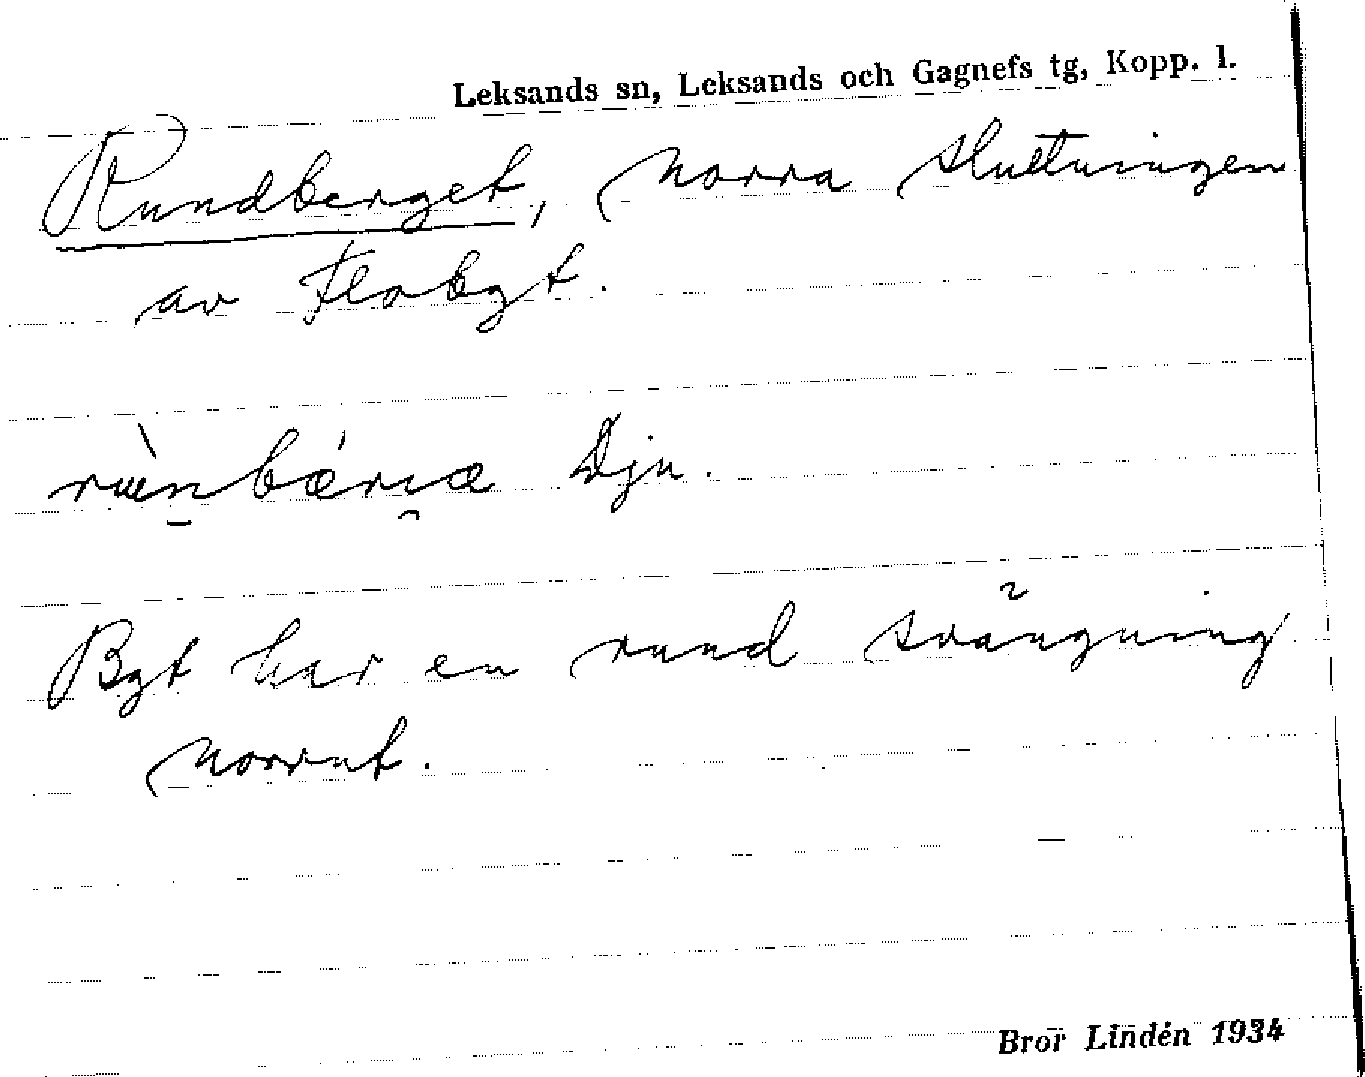 Leksands sn, Leksands och Gagnefs tg, Kopp. l.
Rundberget, norra sluttningen
av Flobgt.
Dju.
Bgt har en rund svängning
norrut.
Bror Lindén 1934